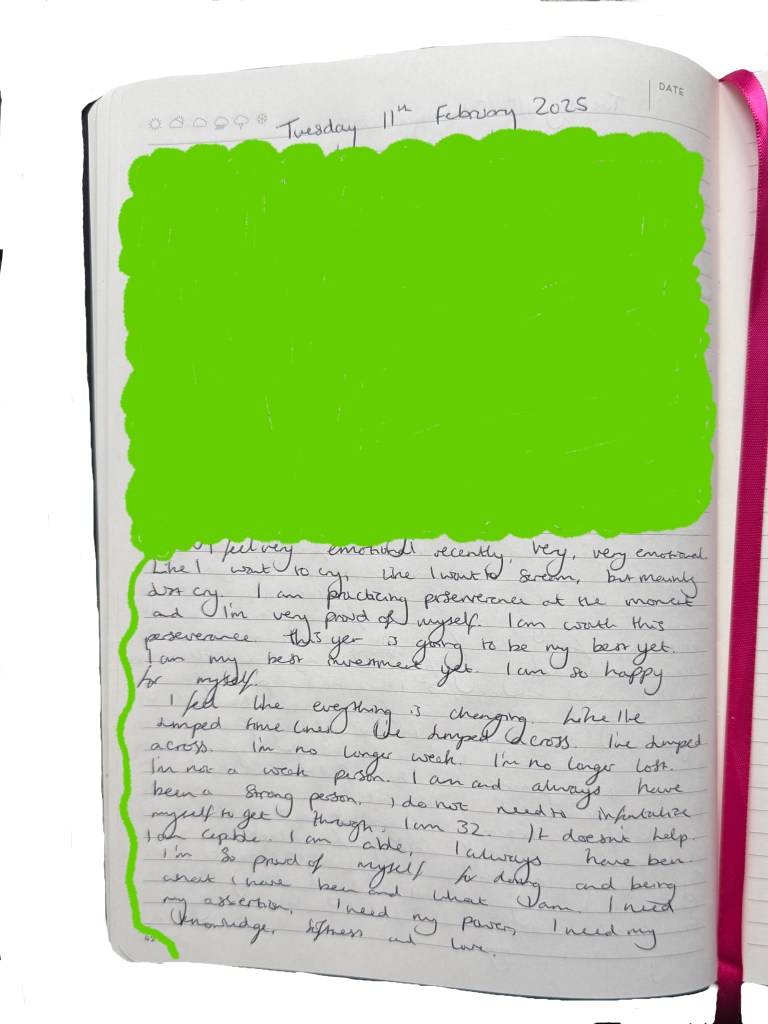 DATE
Tuesday 11th February 2025
I feel very emotional recently, very, very emotional
like I want to cry, like I want to scream, but mainly
just cry. I am practicing perserverence at the moment
and I'm very proud of myself. I am worth this
perseverance. this yer is going to be my best yet.
I am my best investment yet. I am so happy
for myself.
I feel like everything is changing. Like I've
jumped time lines. like jumped across. I've jumped
across. I'm no longer weak. I'm no longer lost.
I'm not a weak person. I am and always have
been a strong person, I do not need to infantalize
myself to get through, I am 32. It doesn't help.
I am capible. I am able, I always have been
I'm so proud of myself for doing and being
what I have been and what I am. I need
my assertion, I need my power, I need my
knowledge, softness and love.